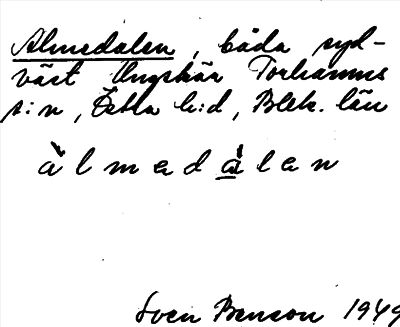 Almedalen, båda syd-
väst Ungskär Torhamns
s:n, Östra h:d, Blek. län
àlmedàlen
Sven Benson 1949